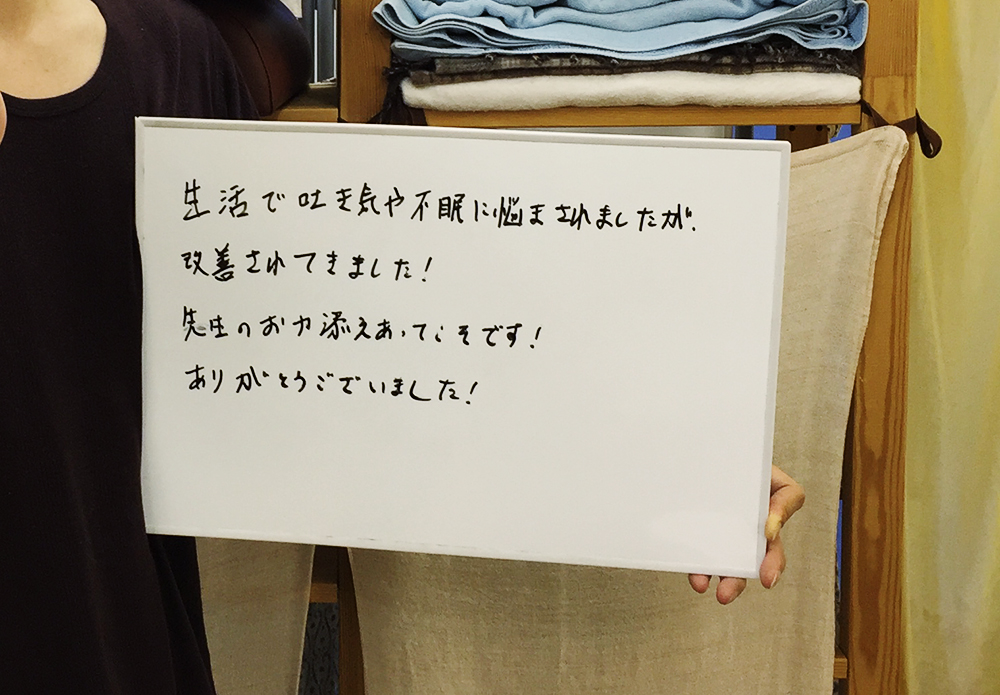 生活で吐き気や不眠に悩まされましたが、
改善されてきました!
先生のお力添えあってこそです!
ありがとうございました!